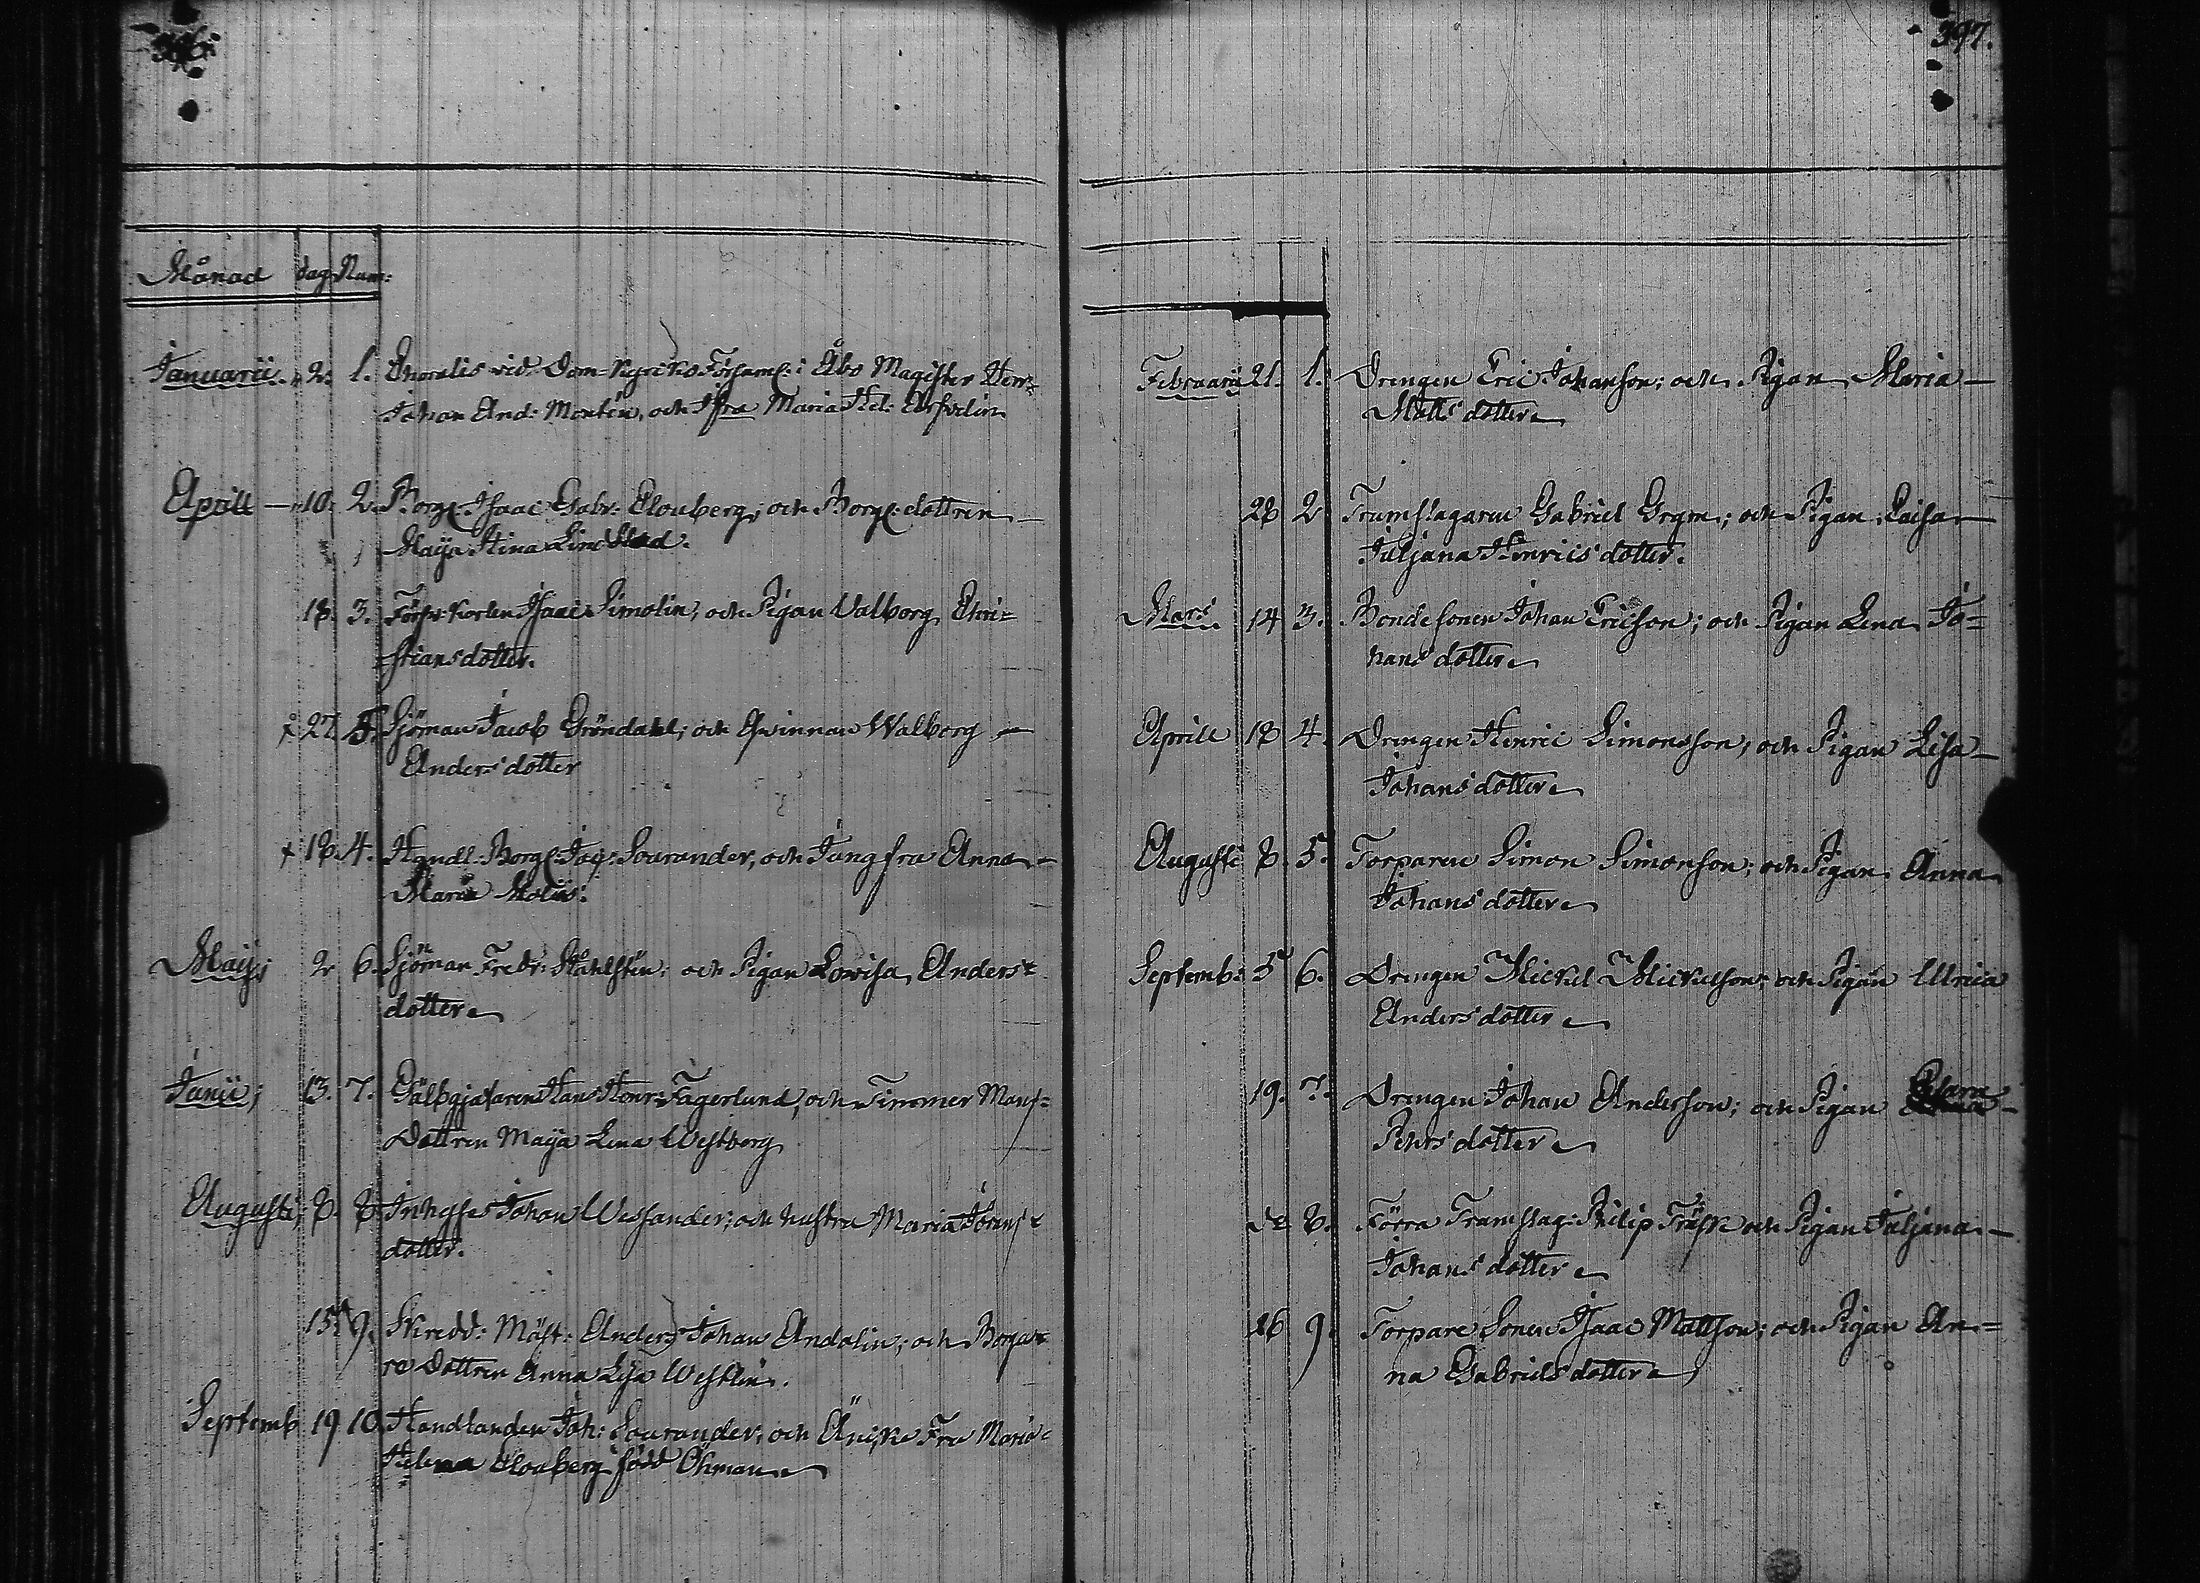 397.
Månad dag Num:
Januarii 2. 1. Choralis vid Dom-Kyrcko Församl: i Åbo Magister Herr
Johan And: Montén, och Jfru Maria Hel: Arfvelin
Aprill 10. 2. Borg: Isaac Gabr: Elouberg; och Borg: dottren
Maija Stina
18. 3. Isaac Simolin; och Pigan Valborg Chri=
stiansdotter.
27. 5. Sjöman Jacob Gröndahl; och Qvinnan Walborg
Andersdotter
18. 4. Handl: Borg: Sourander, och Jungfru Anna
Maria
Maij; 2 6. Sjöman Fredr: Ståhlsten; och Pigan Lovisa Anders=
dotter
Junii; 13. 7. Hans Henr: Fagerlund, och Timmer Mans=
Dottren Maija Lena Westberg
Augusti; 8. 8. Inhyses Johan Wessander; och hustru Maria Jörans=
dotter.
15. 9. Skredd: Mäst: Anders Johan Andalin; och Borga=
re Dottren Anna Lisa Westlin.
Septemb 19 10. Handlanden Joh: Sourander; och Änka Fru Maria
Helena Elouberg född Öhman
Februarii 21. 1. Drengen Eric Johanson; och Pigan Maria
Matts dotter
28 2. Trumslagaren Gabriel Grym; och Pigan Caisa
Juljana Henrics dotter.
Mars 14 3. Bondesonen Johan Ericson; och Pigan Lena Jo=
hans dotter
Aprill 18 4. Drengen Henric Simonsson; och Pigan Lisa
Johans dotter
Augusti 8. 5. Torparen Simon Simonson; och Pigan Anna
Johans dotter
Septemb: 5 6. Drengen Mickel Mickelson; och Pigan Ulrica
Anders dotter
19. 7. Drengen Johan Anderson; och Pigan Clara
Pehrs dotter
8. Förra Trumslag: Philip Träsk och Pigan Juljana
Johans dotter
26 9. Torpare Sonen Isaac Mattson; och Pigan An=
na Gabriels dotter